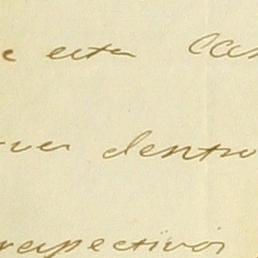 e esta Cas
ver dentro
respectivos